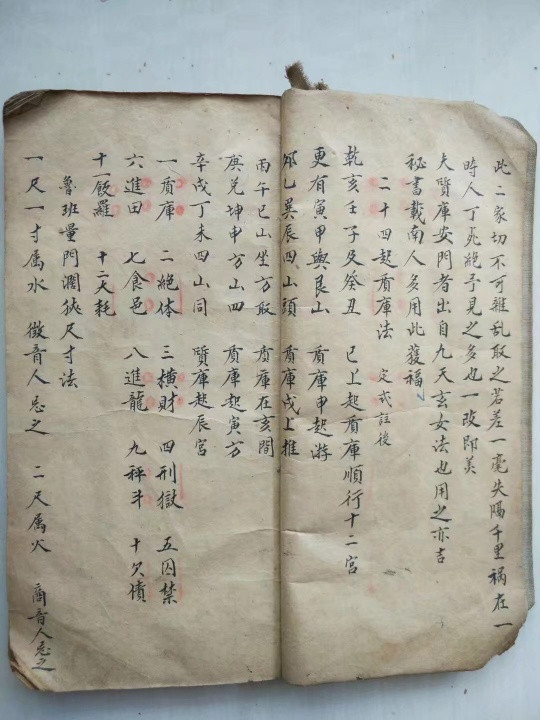 此二家切不可雜乱取之若差一毫失隔千里祸在一
時人丁死絶予見之多也一改即美
夫質库安門者出自九天玄女法也用之亦吉
秘書載南人多用此獲福
二十四起質庫法 定式註後
乾亥壬子及癸丑 已上起質庫順行十二宮
更有寅甲與艮山 質庫甲起游
夘乙巽辰四山頭 質庫戌上推
丙午巳山坐方取 質庫在亥間
庚兑坤申方山四 質庫起寅方
辛戌丁未四山同 質庫起辰宮
一質庫 二絶体 三横財 四刑獄 五囚禁
六進田 七食邑 八進龍 九秤斗 十欠債
十一飯羅 十二大耗
魯班量門濶狹尺寸法
一尺一寸属水 徵音人忌之 二尺属火 商音人忌之